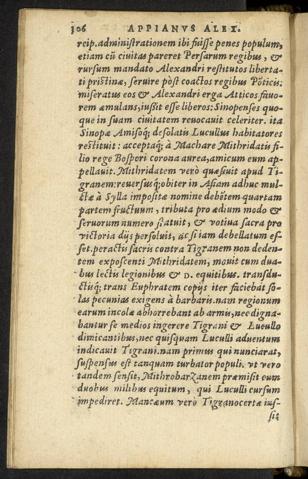 306 APPIANVS ALEX.
reip. administrationem ibi fuisse penes populum,
etiam cũ ciuitas pareret Persarum regibus, &
rursum mandato Alexandri restitutos liberta-
ti pristinæ, seruire pòst coactos regibus Põticis:
miseratus eos & Alexandri erga Atticos fauo-
rem æmulans, iussit esse liberos: Sinopenses quo-
que in suam ciuitatem reuocauit celeriter. ita
Sinopæ Amisoq́; desolatis Lucullus habitatores
restituit: acceptaq́; à Machare Mithridatis fi-
lio rege Bospori corona aurea, amicum eum ap-
pellauit. Mithridatem verò quæsiuit apud Ti-
granem: reuersusq́; obiter in Asiam adhuc mul-
ctæ à Sylla impositæ nomine debẽtem quartam
partem fructuum, tributa pro ædium modo &
seruorum numero statuit, & votiua sacra pro
victoria dijs persoluit, ac si iam debellatum es-
set. peractis sacris contra Tigranem non deden-
tem exposcenti Mithridatem, mouit cum dua-
bus lectis legionibus & D. equitibus. transdu-
ctisq́; trans Euphratem copijs iter faciebat so-
las pecunias exigens à barbaris. nam regionum
earum incolæ abhorrebant ab armis, nec digna-
bantur se medios ingerere Tigrani & Lucullo
dimicantibus, nec quisquam Luculli aduentum
indicauit Tigrani. nam primus qui nunciarat,
suspensus est tanquam turbator populi. vt vero
tandem sensit, Mithrobarzanem præmisit cum
duobus milibus equitum, qui Luculli cursum
impediret. Mancæum verò Tigranocertæ ius-
sit